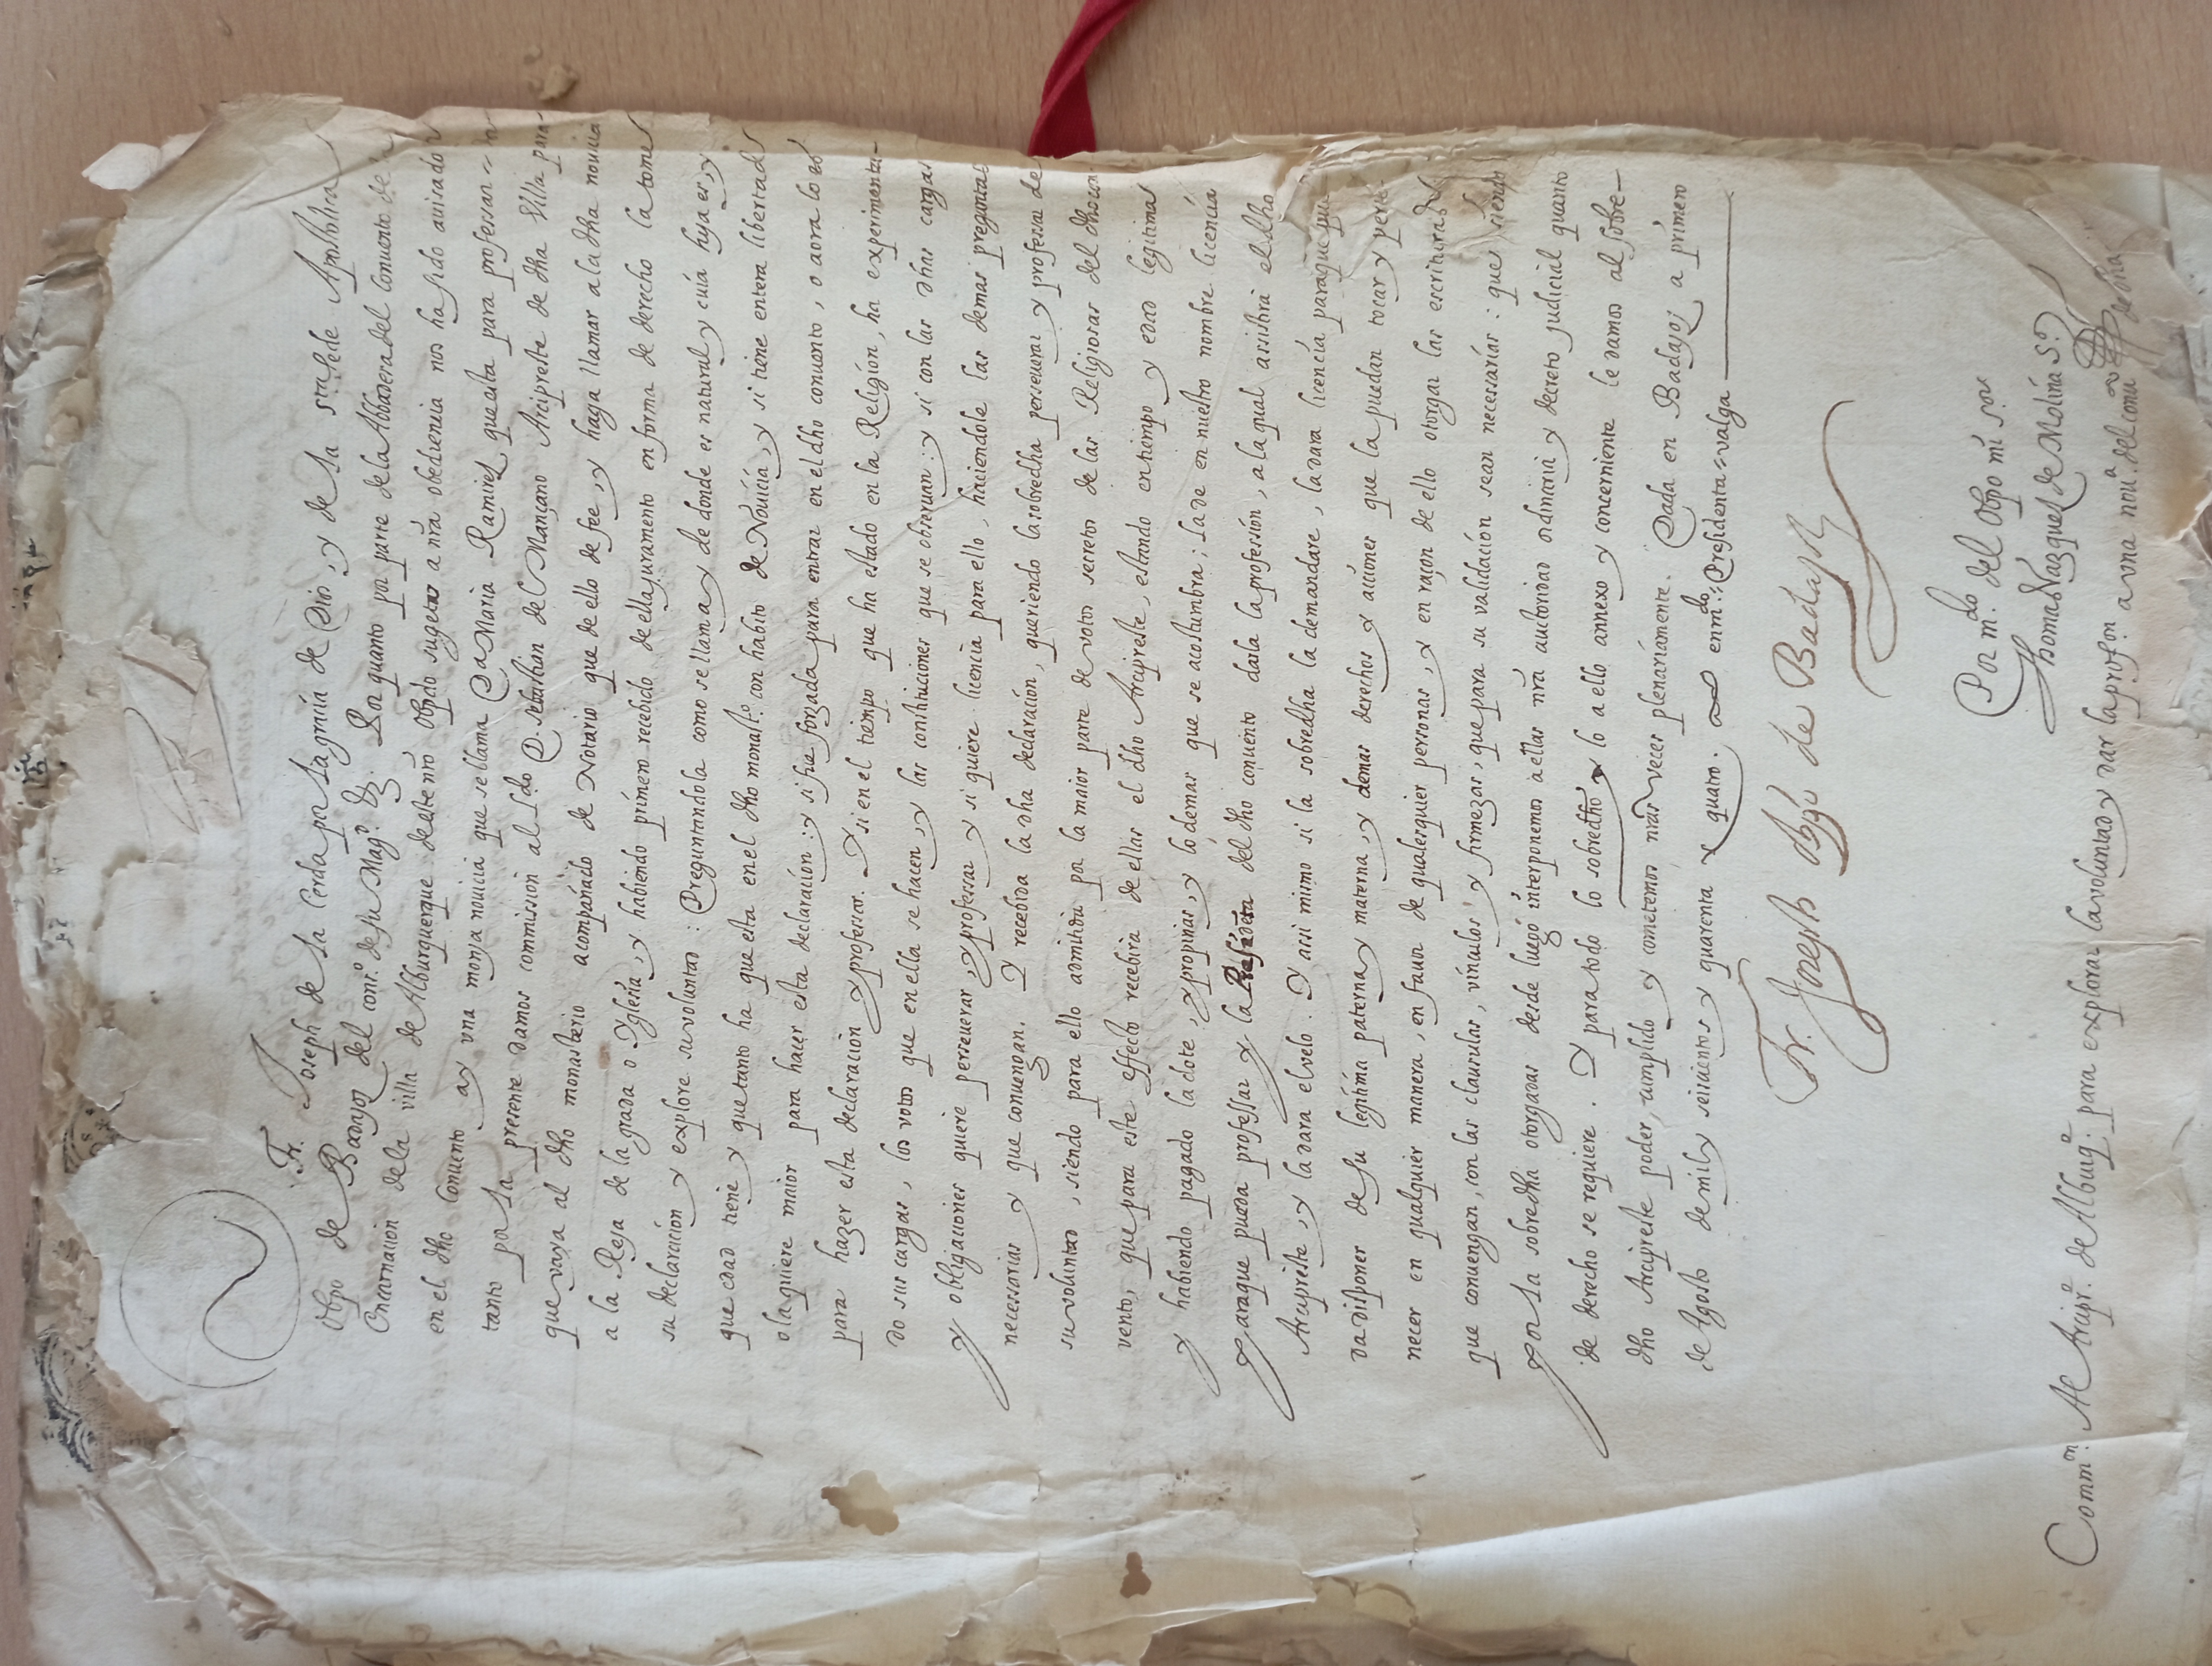 Fr. Joseph de la Cerda por la gracia de Dios, y de la S.ta Sede Apostolica
Obpo de Badajoz del cons.o de su Mag.d &. Por quanto por parte de la Abbadesa del Convento de la
Encarnacion de la villa de Alburquerque de este nro Obpdo sugeto a nra obediencia nos ha sido auisado
en el dho Convento ay vna monja nouicia que se llama Da Maria Ramirez que esta para professar =
tanto por la presente damos commission al L.do D. Sebastian del Mançano Arcipreste de dha Villa para
que vaya al dho monasterio acompañado de Notario que de ello de fee, y haga llamar a la dha nouicia
a la Reja de la grada o Yglesia, y habiendo primero recebido de ella juramento en forma de derecho la tome
su declaracion y explore su voluntad: Preguntandola como se llama y de donde es natural y cuia hija es, y
que edad tiene y que tanto ha que esta en el dho monast.o con habito de Nouicia, y si tiene entera libertad
o la quiere maior para hacer esta declaracion: y si fue forzada para entrar en el dho conuento, o aora lo es
para hazer esta declaracion y professar. Y si en el tiempo que ha estado en la Religion, ha experimenta-
do sus cargas, los votos que en ella se hacen, y las constituciones que se obseruan: y si con las dhas cargas
y obligaciones quiere perseuerar, y professar y si quiere licencia para ello, haciendole las demas preguntas
necessarias y que conuengan. Y recebida la dha declaracion, queriendo la sobredha perseuerar y professar de
su voluntad, siendo para ello admitida por la maior parte de votos secretos de las Religiosas del dho con-
vento, que para este effecto recebira de ellas el dho Arcipreste, estando en tiempo y edad legitima
y habiendo pagado la dote, y propinas, y lo demas que se acostumbra; la de en nuestro nombre licencia
paraque pueda professar y la Presidēta del dho conuento darla la profession, a la qual assistira el dho
Arcipreste, y la dara el velo. Y assi mismo si la sobredha la demandare, la dara licencia paraque pue
da disponer de su legitima paterna y materna, y demas derechos y acciones que la puedan tocar y perte-
necer en qualquier manera, en fauor de qualesquier personas, y en raçon de ello otorgar las escrituras
que conuengan, con las clausulas, vinculos y firmezas, que para su validacion sean necessarias: que siendo
por la sobredha otorgadas desde luego interponemos a ellas nra auctoridad ordinaria y decreto judicial quanto
de derecho se requiere. Y para todo lo sobredho y lo a ello annexo y concerniente le damos al sobre-
dho Arcipreste poder cumplido y cometemos nras veces plenariamente. Dada en Badajoz a primero
de Agosto de mil y seiscientos y quarenta y quatro. enm.do = Presidenta = valga
Fr. Joseph obpo de Badajoz
Por m.do del Obpo mi S.or
Thomas Vazquez de Molina S.o
Comm.on Al Arcipr.e de Alburq.e para explorar la voluntad y dar la prof.on a vna nou.a del conu.to de dha